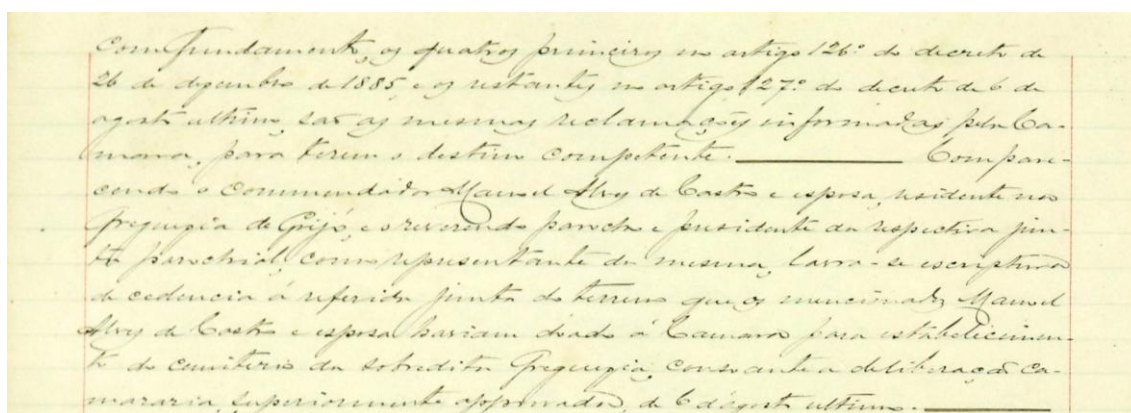 com fundamento, os quatros primeiros no artigo 126º do decreto de
26 de dezembro de 1885, e os restantes no artigo 127º do decreto de 6 de
agosto ultimo, sao as mesmas reclamações informadas pela Ca-
mara, para terem o destino competente. ——— Compare-
cendo o Commendador Manoel Alves de Castro e esposa, residente na
freguezia de Grijó, e o reverendo parocho e presidente da respectiva jun-
ta parochial, como representante da mesma, lavra-se escriptura
de cedencia á referida junta do terreno que os mencionados Manoel
Alves de Castro e esposa haviam doado á Camara para estabelecimen-
to do cemiterio da sobredita freguezia, consoante a deliberação ca-
mararia, superiormente approvada, de 6 d'agosto ultimo. ———